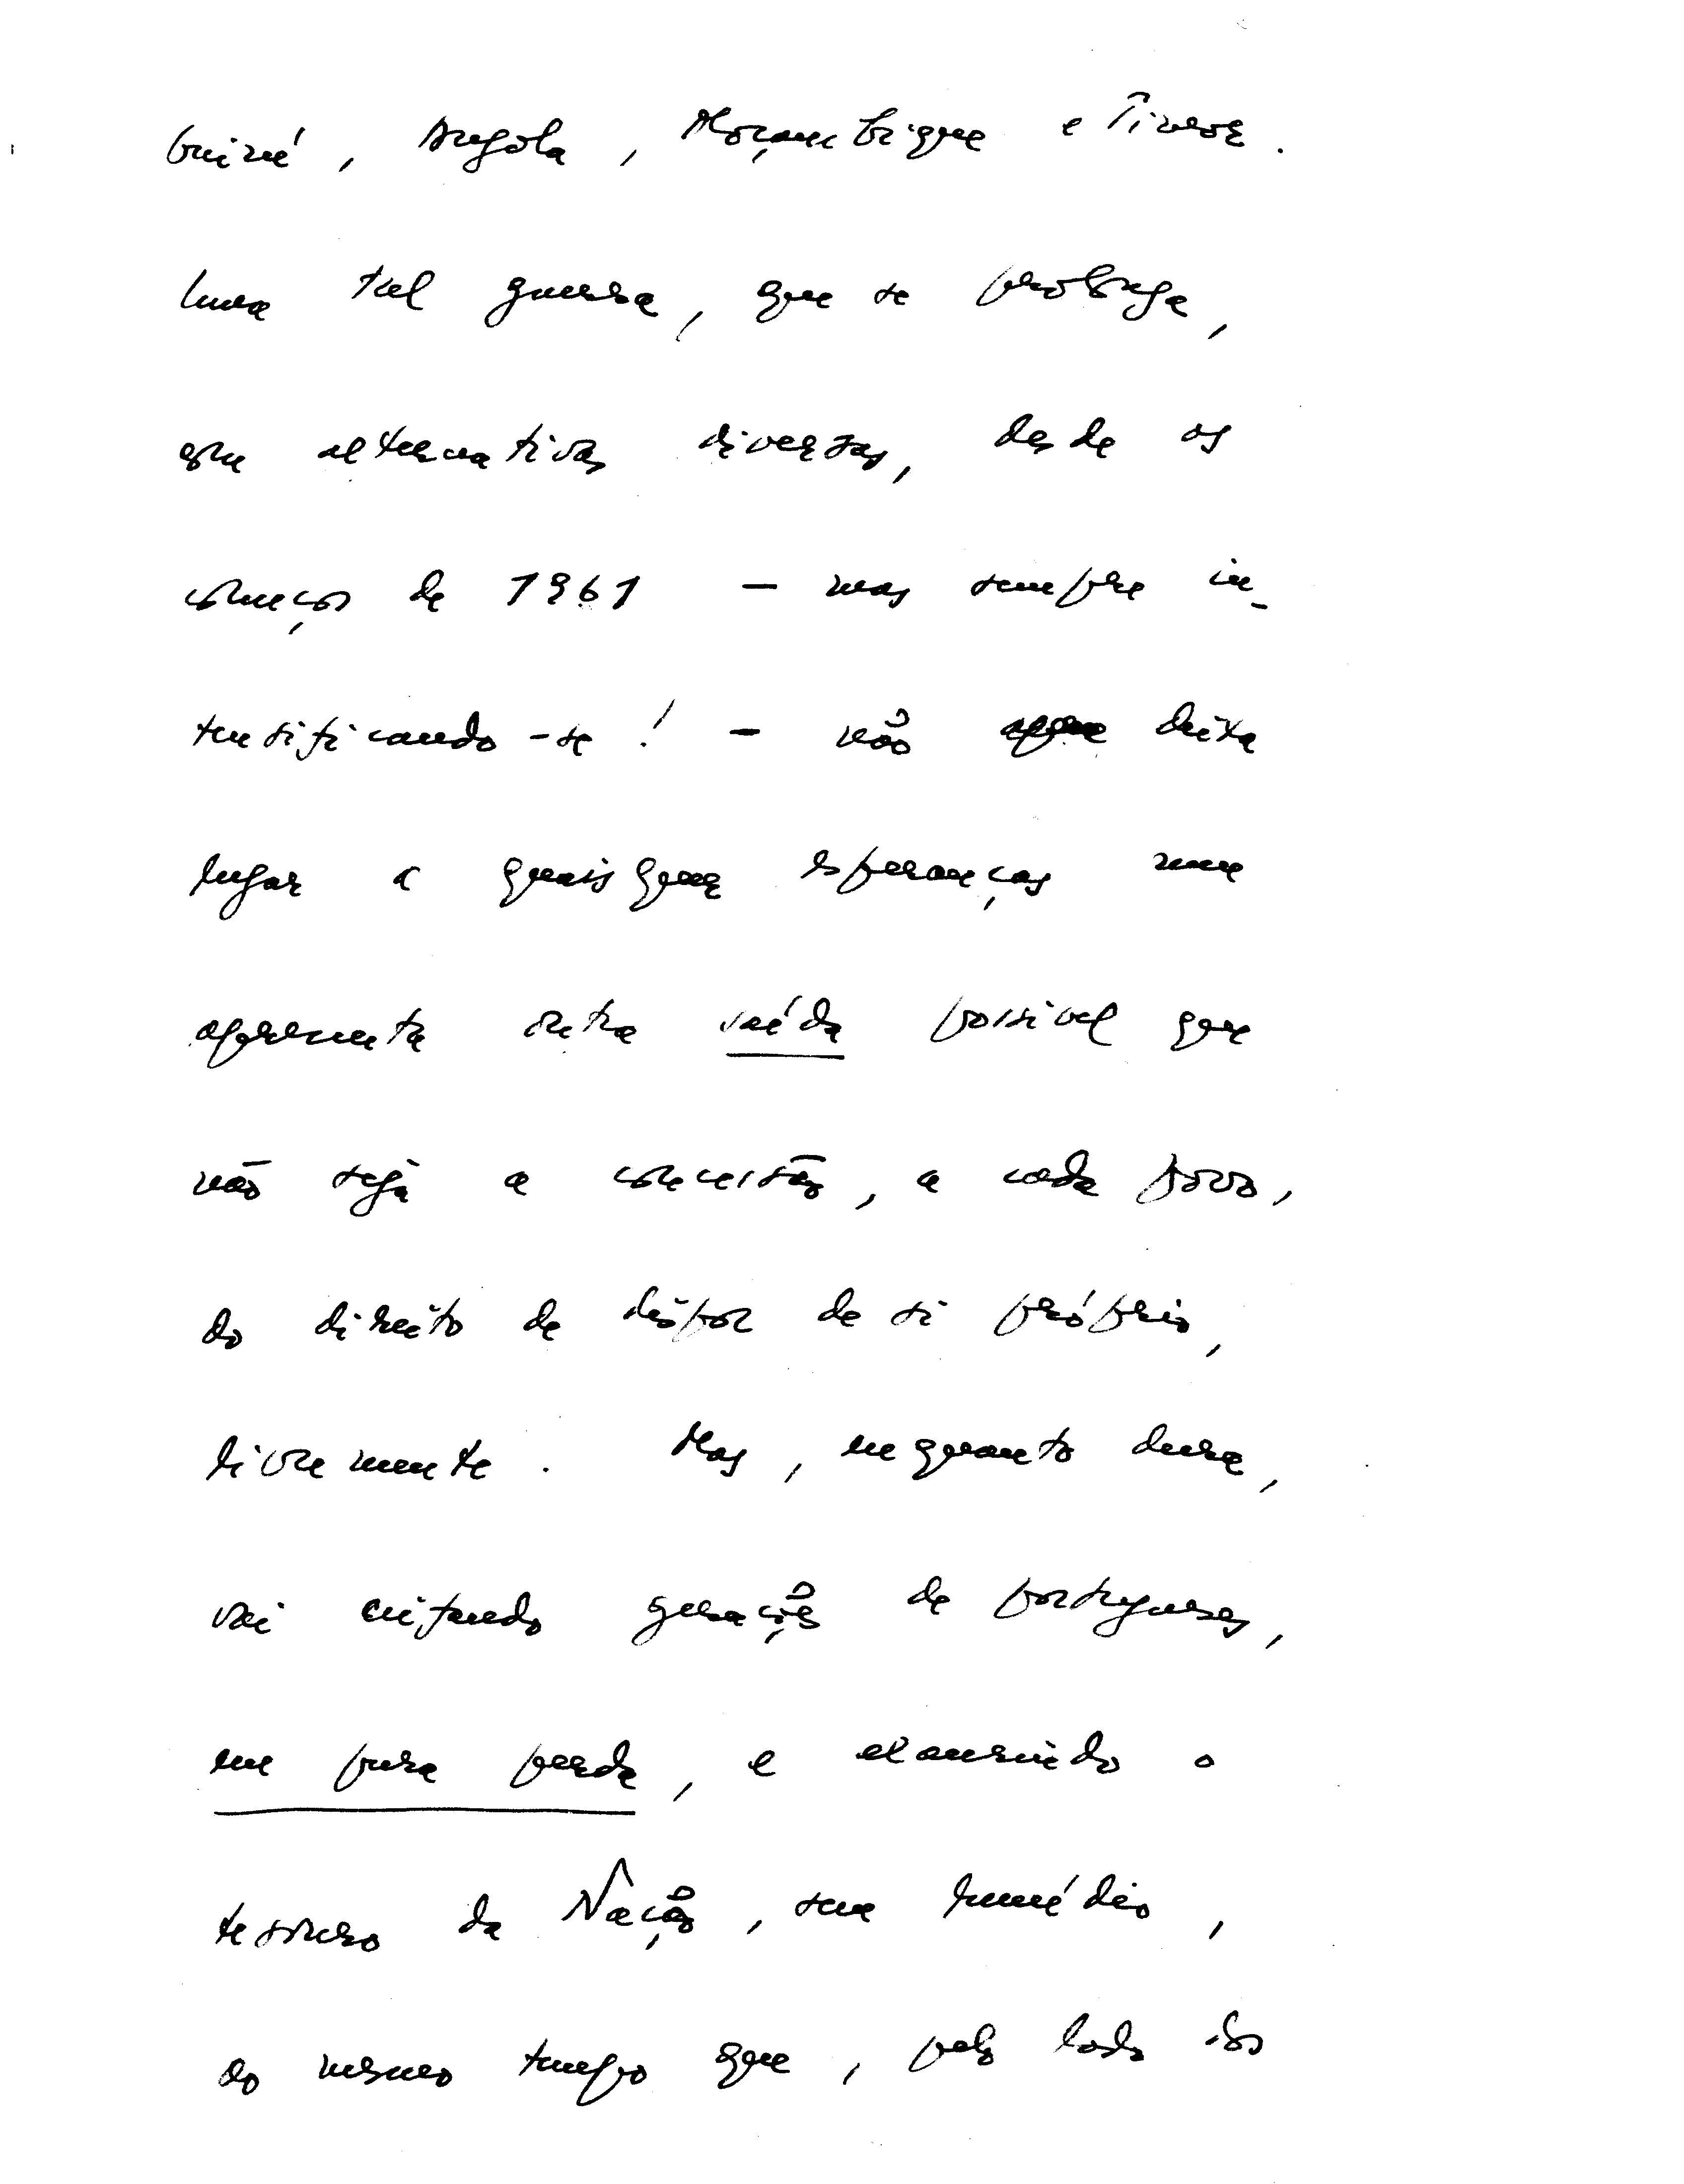 Guiné, Angola, Moçambique e Timor.
Uma tal guerra, que se prolonga,
com alternativas diversas, desde os
começos de 1961 — mas sempre in-
tensificando-se! — não deixa
lugar a quaisquer esperanças nem
apresenta outra saída possível que
não seja a concessão, a cada povo,
do direito de dispor de si próprio,
livremente. Mas, enquanto dura,
vai ceifando gerações de portugueses,
em pura perda, e exaurindo o
tesouro da Nação, sem remédio,
ao mesmo tempo que, pelo lado dos